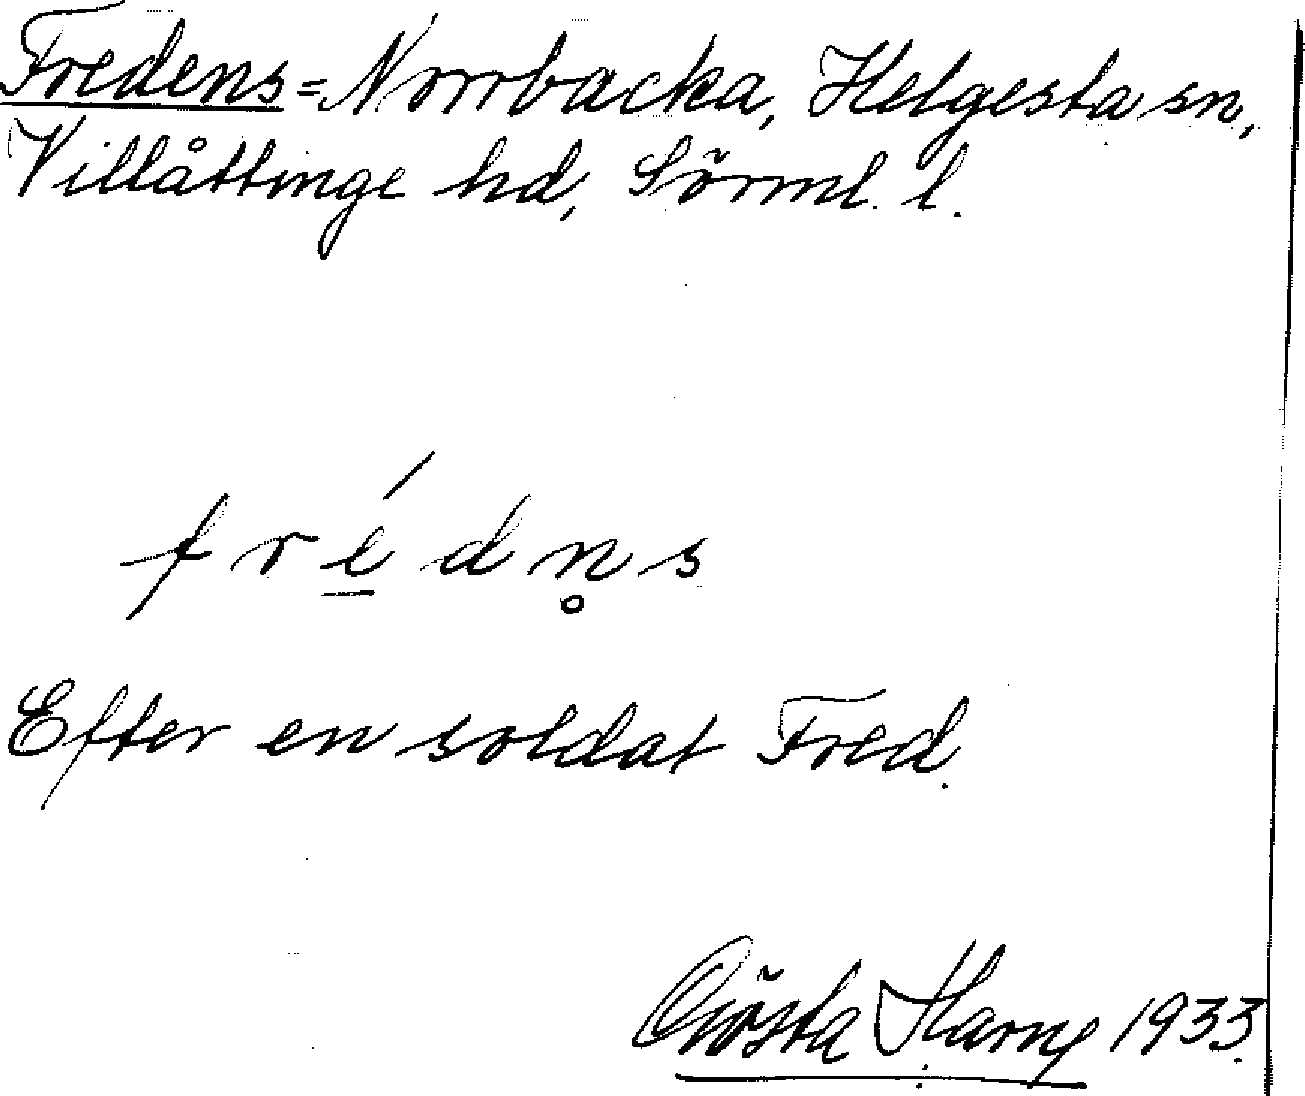 Fredens=Norrbacka, Helgesta sn,
Villåttinge hd, Sörml. l.
f r é̱ d n̥ s
Efter en soldat Fred.
Gösta Harne 1933.